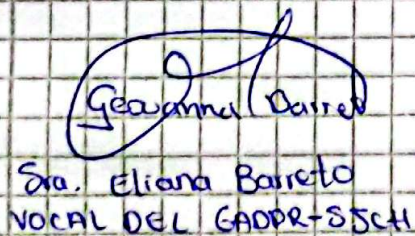 Geovanna Barreto
Sra. Eliana Barreto
VOCAL DEL GADPR-SJCH